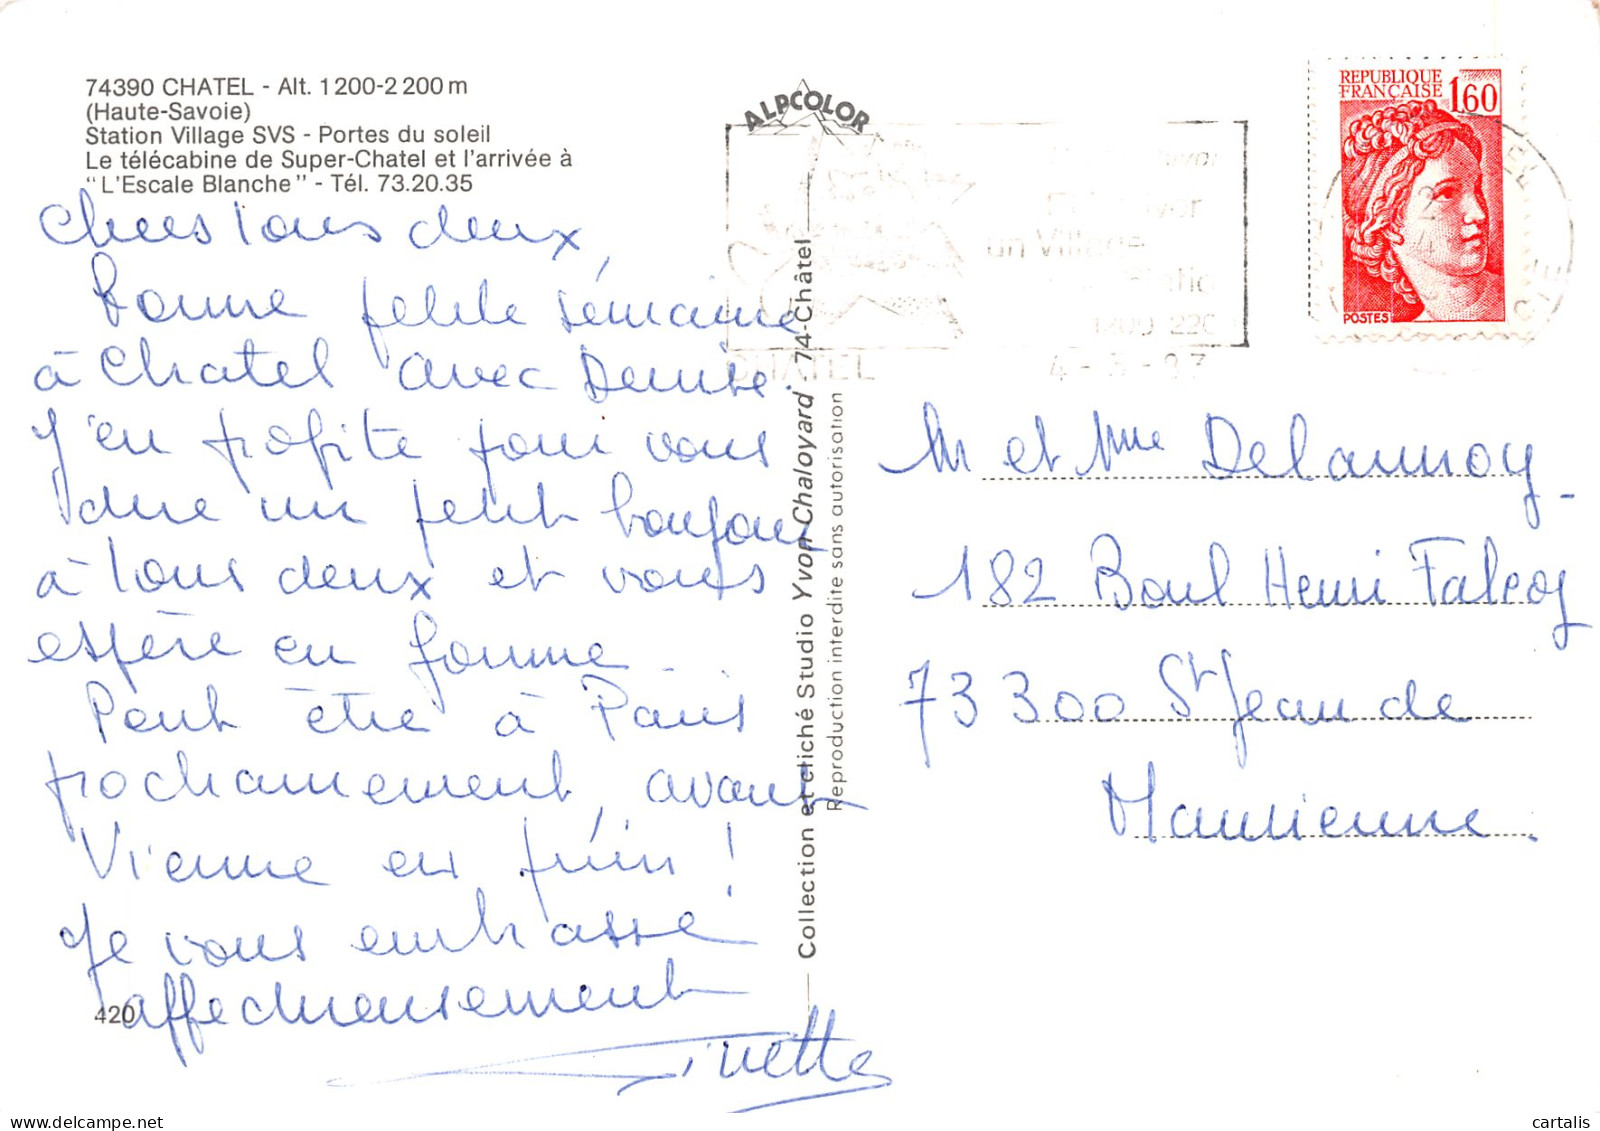 74390 CHATEL - Alt. 1200-2200 m
(Haute-Savoie)
Station Village SVS - Portes du soleil
Le télécabine de Super-Chatel et l'arrivée à
"L'Escale Blanche" - Tél. 73.20.35
Chers tous deux,
Bonne petite semaine
à Chatel avec Denise.
J'en profite pour vous
dire un petit bonjour
à tous deux et vous
espère en forme.
Peut être à Paris
prochainement, avant
Vienne en juin !
Je vous embrasse
affectueusement
420
Ginette
ALPCOLOR
Collection et cliché Studio Yvon Chaloyard - 74-Châtel
Reproduction interdite sans autorisation
un Village
CHATEL
REPUBLIQUE
FRANÇAISE
1,60
POSTES
Mr et Mme Delannoy -
182 Boul Henri Falcoz
73300 St Jean de
Maurienne.
cartalis